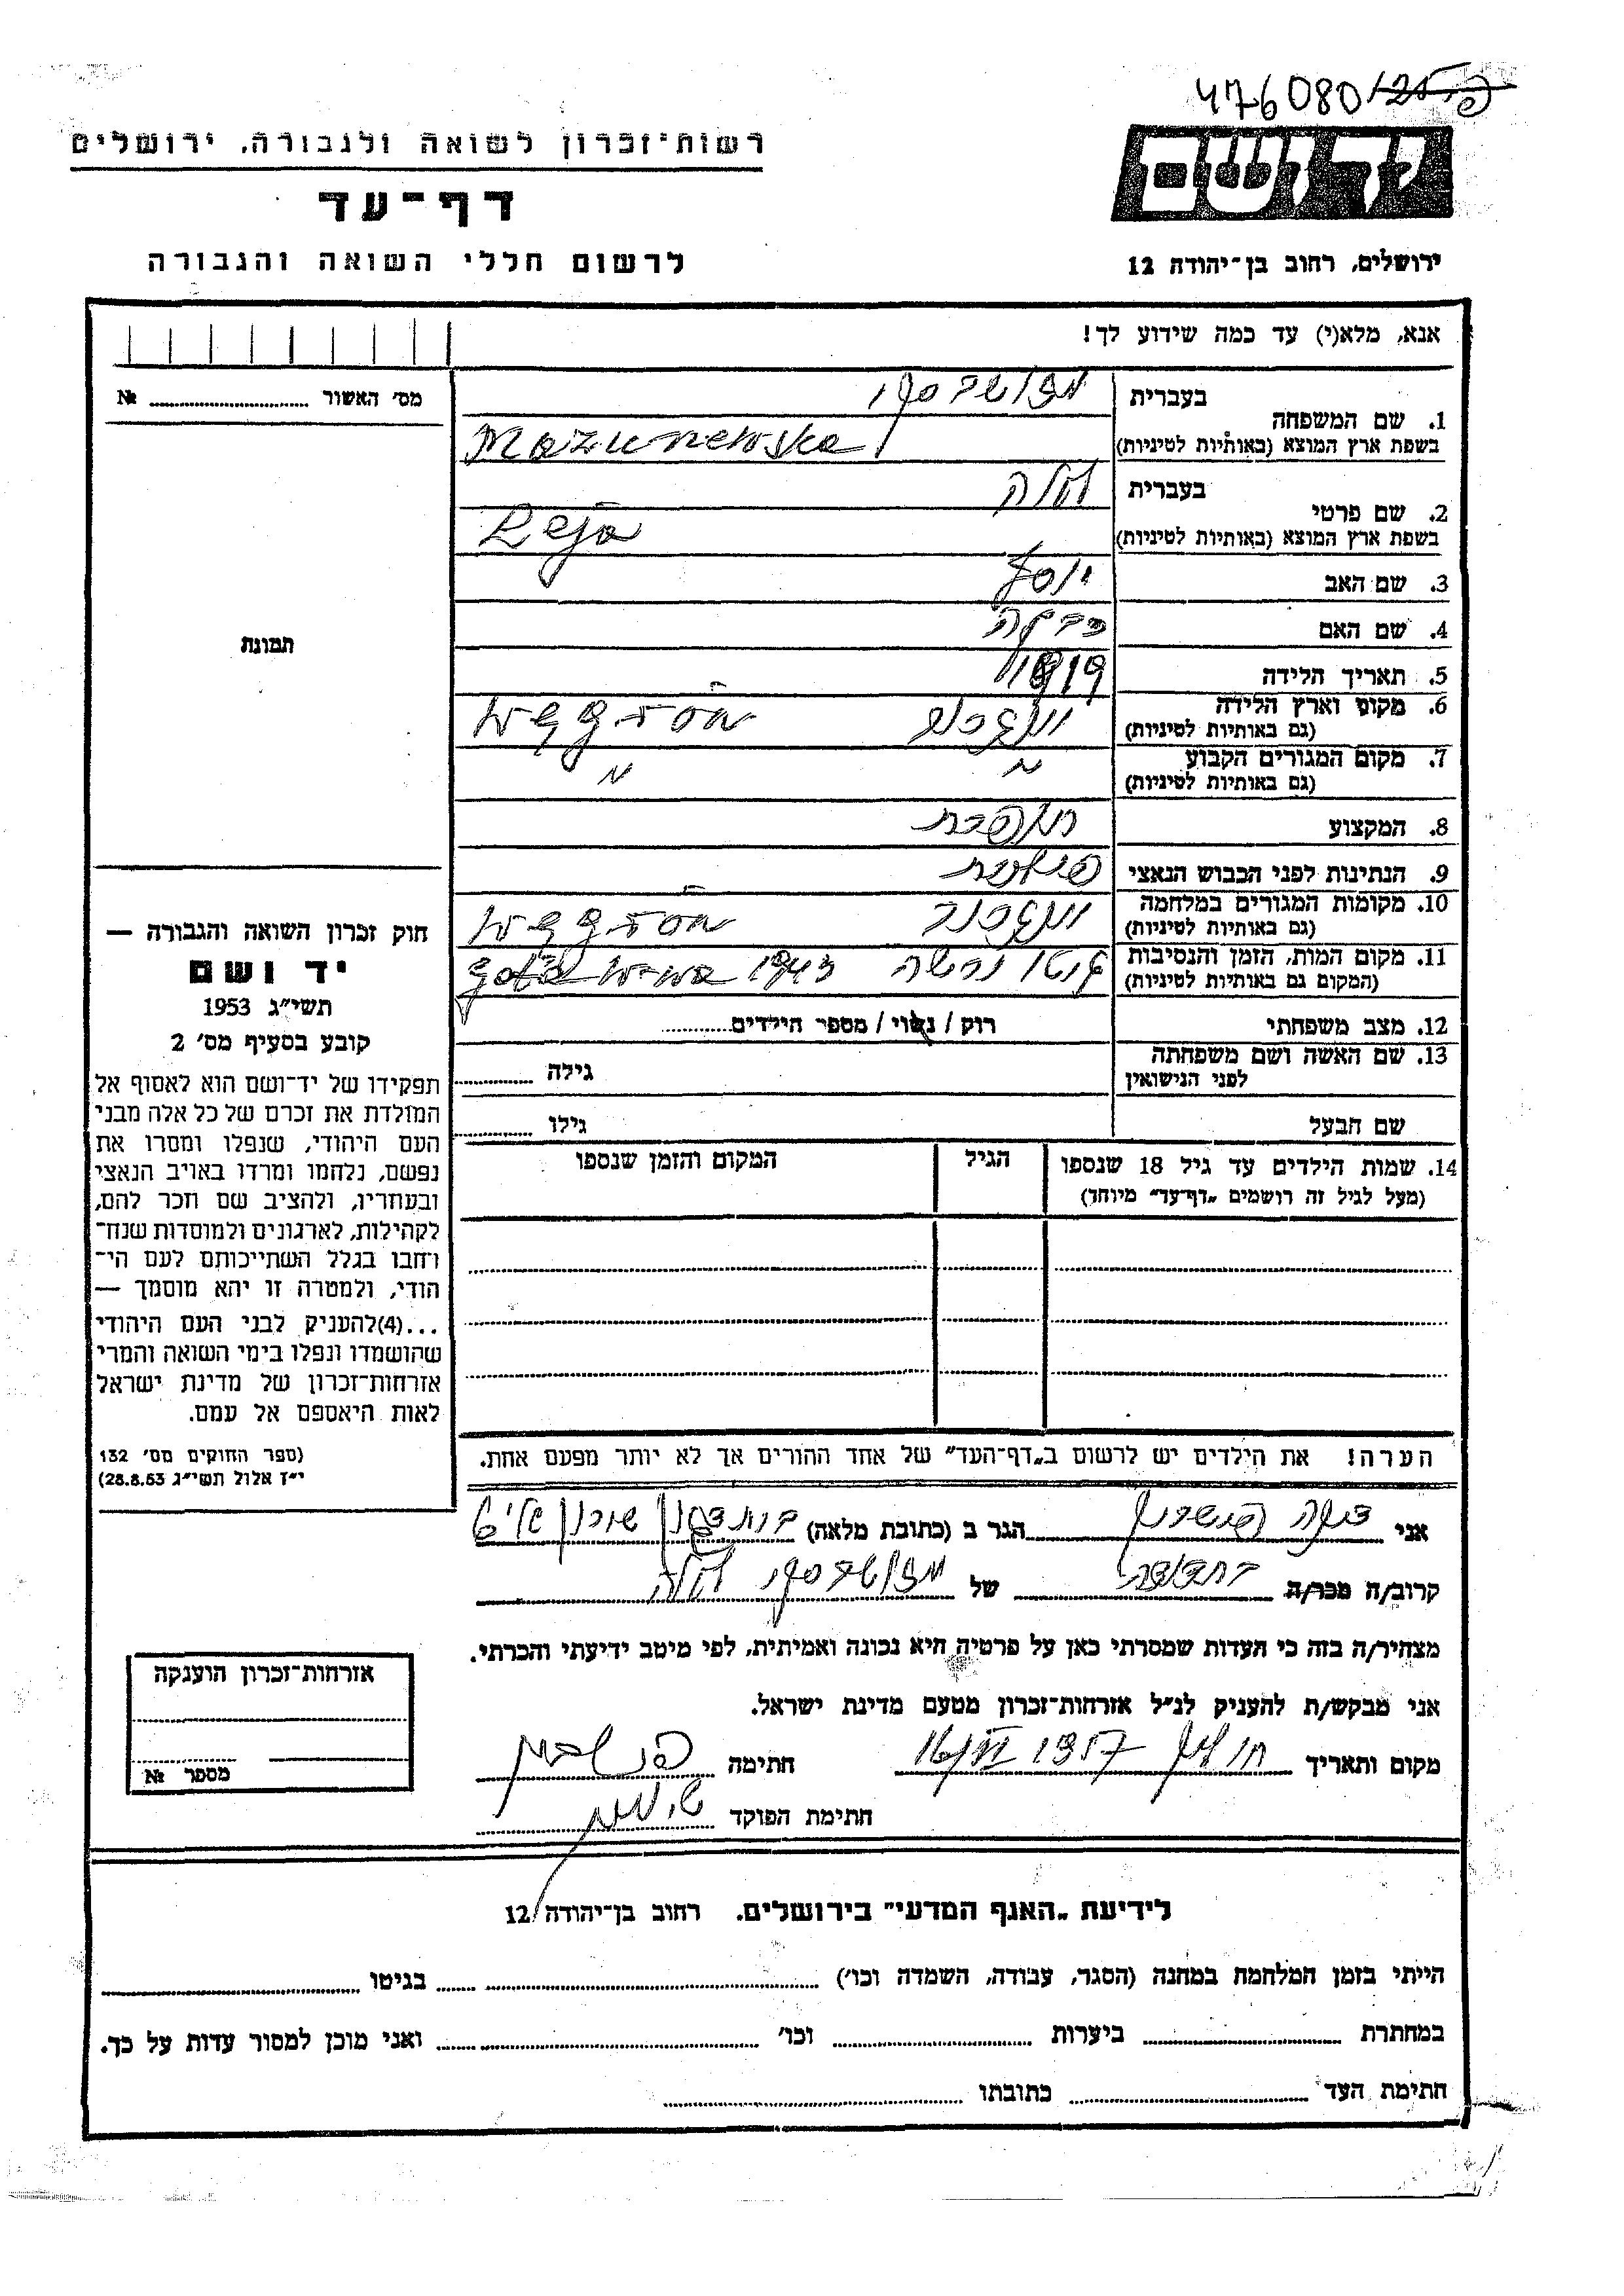 476080/
רשות־זכרון לשואה ולגבורה. ירושלים
יד ושם
דף־עד
לרשום חללי השואה והגבורה
ירושלים, רחוב בן־יהודה 12
אנא, מלא(י) עד כמה שידוע לך!
מס׳ האשור №
תמונת
בעברית
1. שם המשפחה
בשפת ארץ המוצא (באותיות לטיניות)
בעברית
2. שם פרטי
בשפת ארץ המוצא (באותיות לטיניות) Leja
3. שם האב יוסף
4. שם האם רבקה
5. תאריך הלידה
6. מקום וארץ הלידה
(גם באותיות לטיניות)
7. מקום המגורים הקבוע
(גם באותיות לטיניות)
8. המקצוע תופרת
9. הנתינות לפני הכבוש הנאצי פולנית
10. מקומות המגורים במלחמה
(גם באותיות לטיניות)
11. מקום המות, הזמן והנסיבות גטו ורשה 1943
(המקום גם באותיות לטיניות)
12. מצב משפחתי רוק / נשוי / מספר הילדים
13. שם האשה ושם משפחתה
לפני הנישואין גילה
שם הבעל גילו
14. שמות הילדים עד גיל 18 שנספו הגיל המקום והזמן שנספו
(מעל לגיל זה רושמים „דף־עד״ מיוחד)
הערה! את הילדים יש לרשום ב„דף־העד״ של אחד ההורים אך לא יותר מפעם אחת.
חוק זכרון השואה והגבורה —
יד ושם
תשי״ג 1953
קובע בסעיף מס׳ 2
תפקידו של יד־ושם הוא לאסוף אל
המולדת את זכרם של כל אלה מבני
העם היהודי, שנפלו ומסרו את
נפשם, נלחמו ומרדו באויב הנאצי
ובעוזריו, ולהציב שם וזכר להם,
לקהילות, לארגונים ולמוסדות שנח־
רחבו בגלל השתייכותם לעם הי־
הודי, ולמטרה זו יהא מוסמך —
...(4)להעניק לבני העם היהודי
שהושמדו ונפלו בימי השואה והמרי
אזרחות־זכרון של מדינת ישראל
לאות היאספם אל עמם.
(ספר החוקים מס׳ 132
י״ז אלול תשי״ג 28.8.53)
אני הגר ב (כתובת מלאה)
קרוב/ה מכר/ה של
מצהיר/ה בזה כי העדות שמסרתי כאן על פרטיה היא נכונה ואמיתית, לפי מיטב ידיעתי והכרתי.
אני מבקש/ת להעניק לנ״ל אזרחות־זכרון מטעם מדינת ישראל.
מקום ותאריך 1957 חתימה
חתימת הפוקד
אזרחות־זכרון הוענקה
מספר №
לידיעת „האגף המדעי״ בירושלים. רחוב בן־יהודה 12
הייתי בזמן המלחמה במחנה (הסגר, עבודה, השמדה וכו׳) בגיטו
במחתרת ביערות וכו׳ ואני מוכן למסור עדות על כך.
חתימת העד כתובתו